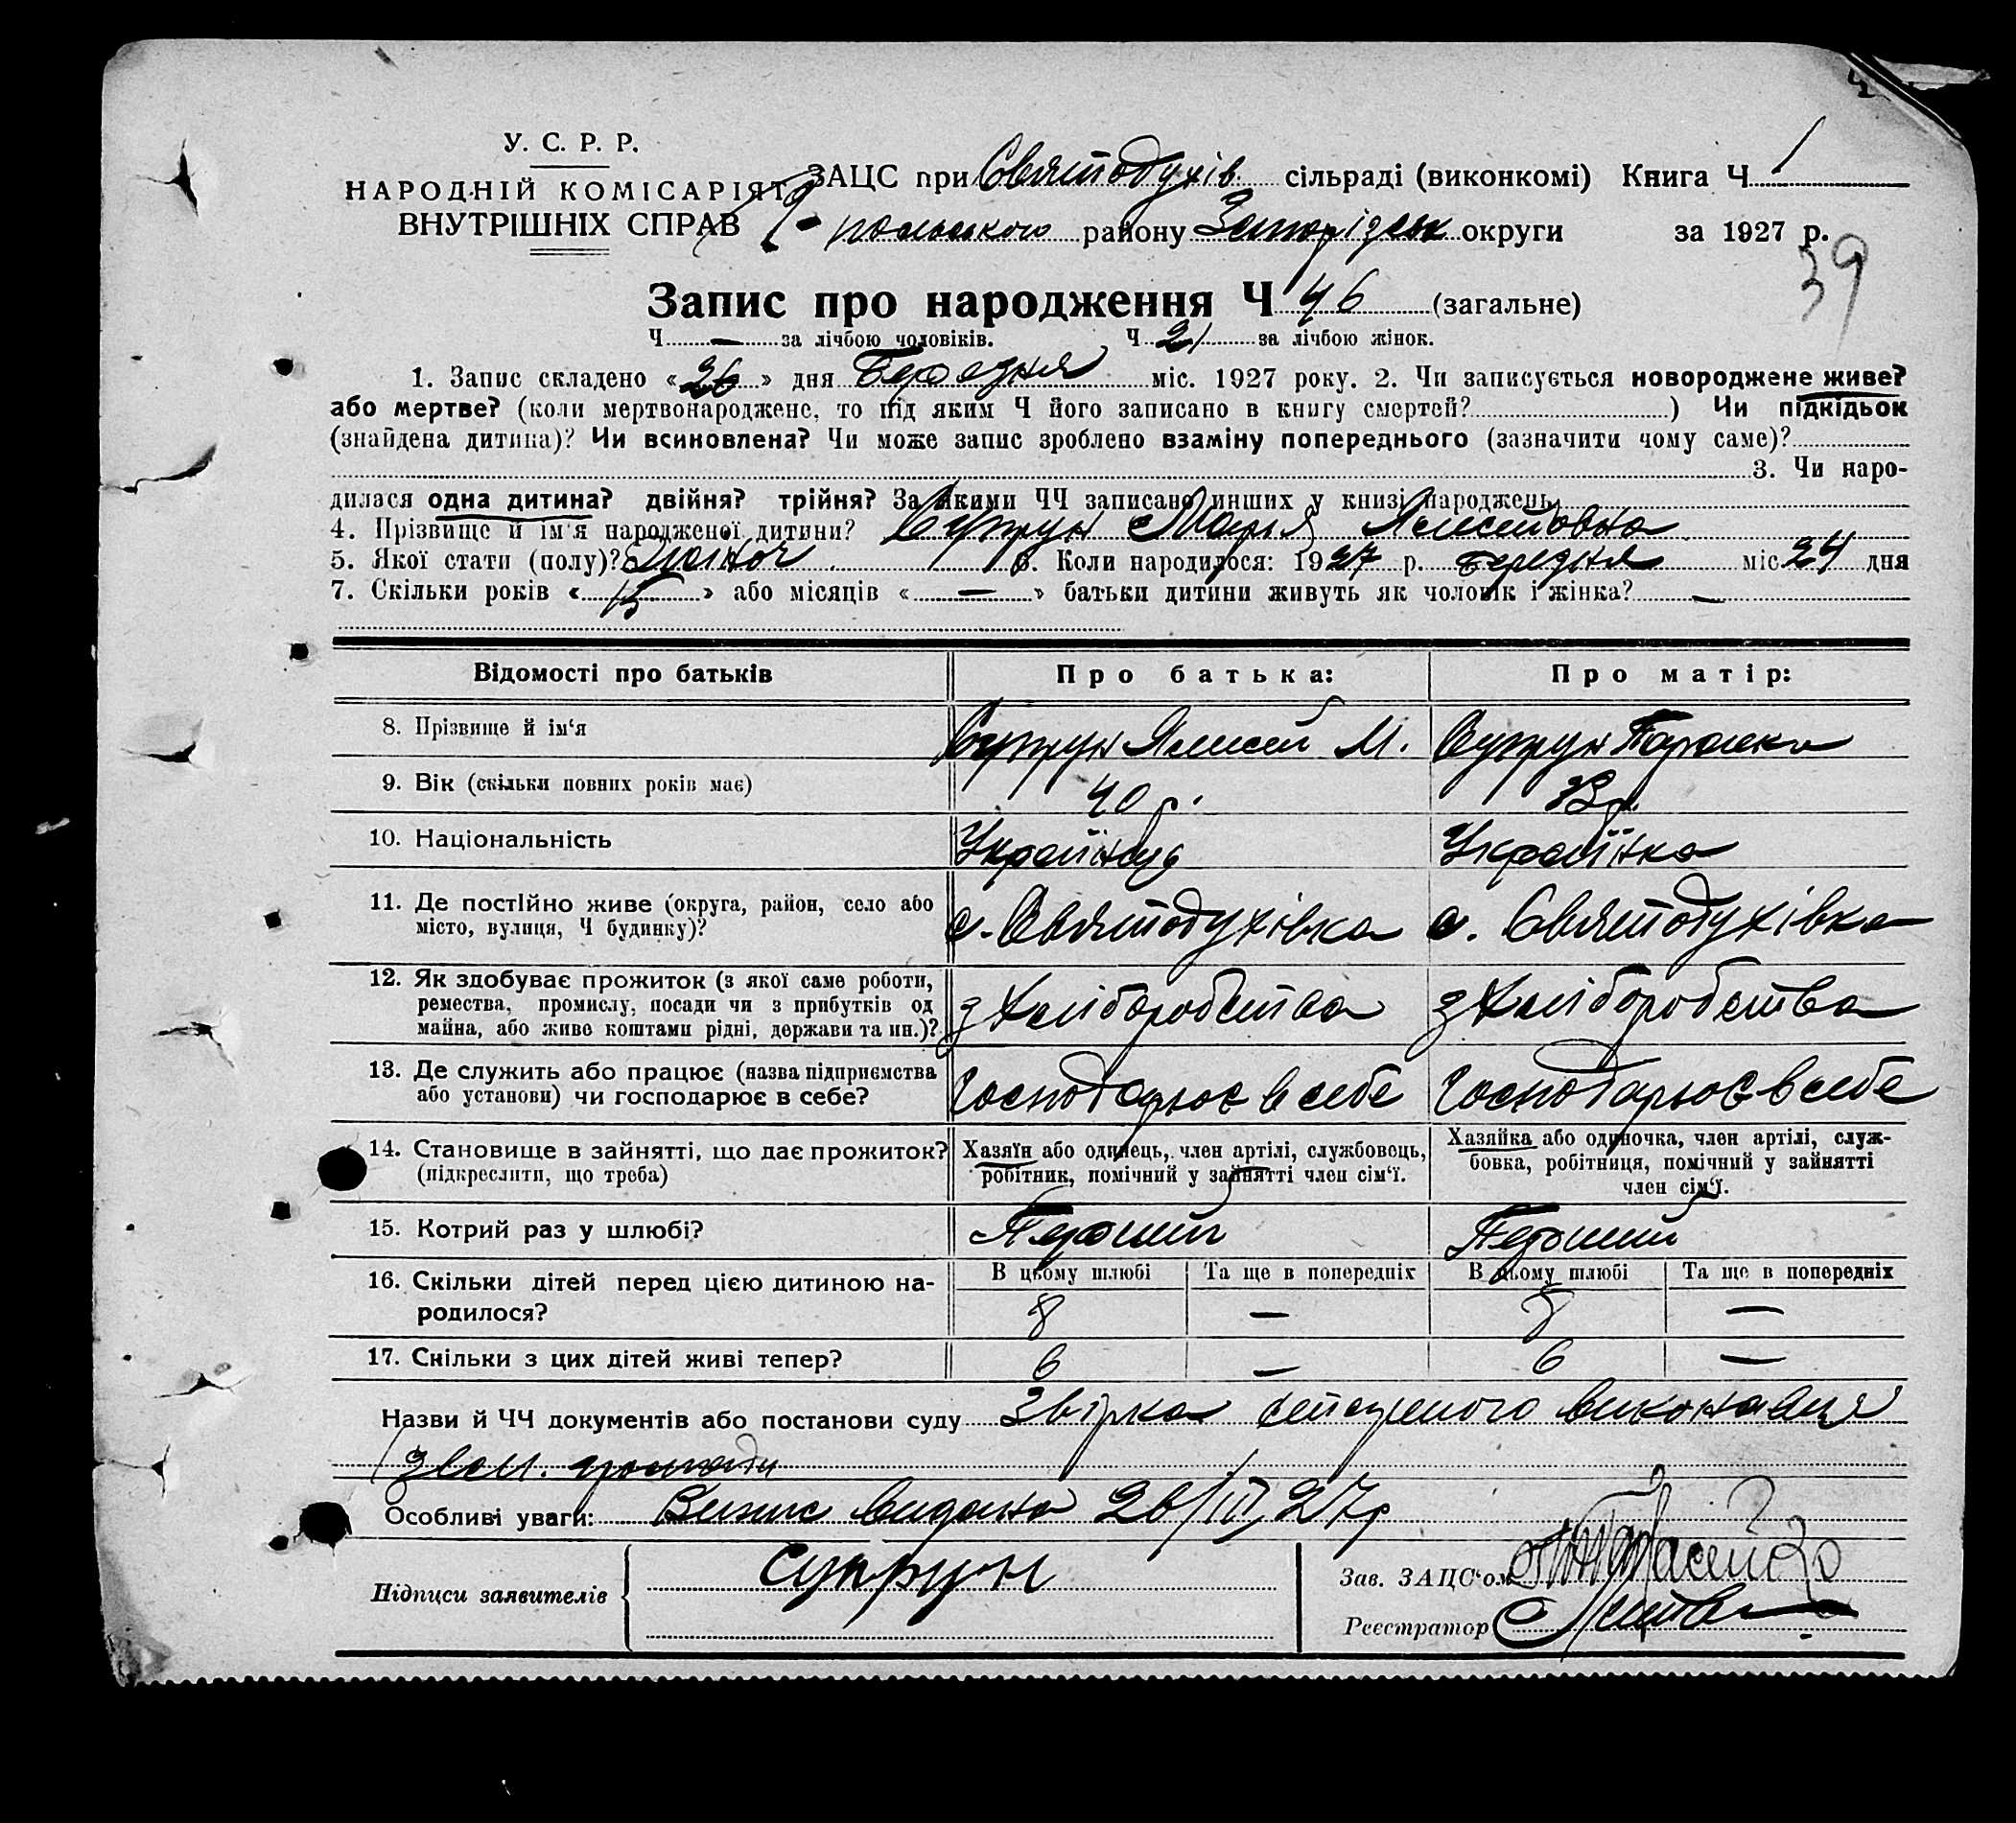 У. С. Р. Р.
НАРОДНІЙ КОМІСАРІЯТ
ВНУТРІШНІХ СПРАВ
ЗАЦС при Святодухів. сільраді (виконкомі) Книга Ч 1
району Запорізьк округи за 1927 р.
39
Запис про народження Ч 46 (загальне)
Ч — за лічбою чоловіків. Ч 21 за лічбою жінок.
1. Запис складено «26» дня Березня міс. 1927 року. 2. Чи записується новороджене живе?
або мертве? (коли мертвонароджене, то під яким Ч його записано в книгу смертей? ) Чи підкідьок
(знайдена дитина)? Чи всиновлена? Чи може запис зроблено взаміну попереднього (зазначити чому саме)?
3. Чи наро-
дилася одна дитина? двійня? трійня? За якими ЧЧ записано инших у книзі народжень
4. Прізвище й ім'я народженої дитини? Супрун Марія
5. Якої стати (полу)? жіноч 6. Коли народилося: 1927 р. березня міс. 24 дня
7. Скільки років « 15 » або місяців « — » батьки дитини живуть як чоловік і жінка? —
Відомості про батьків Про батька: Про матір:
8. Прізвище й ім'я Супрун М. Супрун Параска
9. Вік (скільки повних років має) 40 р.
10. Національність Українець Українка
11. Де постійно живе (округа, район, село або с. Святодухівка с. Святодухівка
місто, вулиця, Ч будинку)?
12. Як здобуває прожиток (з якої саме роботи,
ремества, промислу, посади чи з прибутків од з хліборобства з хліборобства
майна, або живе коштами рідні, держави та ин.)?
13. Де служить або працює (назва підприємства Господарює в себе Господарює в себе
або установи) чи господарює в себе?
14. Становище в зайнятті, що дає прожиток? Хазяїн або одинець, член артілі, службовець, Хазяйка або одиночка, член артілі, служ-
(підкреслити, що треба) робітник, помічний у зайнятті член сім'ї. бовка, робітниця, помічний у зайнятті
член сім'ї.
15. Котрий раз у шлюбі? Перший Перший
16. Скільки дітей перед цією дитиною на- В цьому шлюбі Та ще в попередніх В цьому шлюбі Та ще в попередніх
родилося? 8 — 8 —
17. Скільки з цих дітей живі тепер? 6 — 6 —
Назви й ЧЧ документів або постанови суду Звірка виконавця
зем. громади
Особливі уваги: Випис видана 26/III 27р
Підписи заявителів Супрун Зав. ЗАЦС'ом
Реєстратор